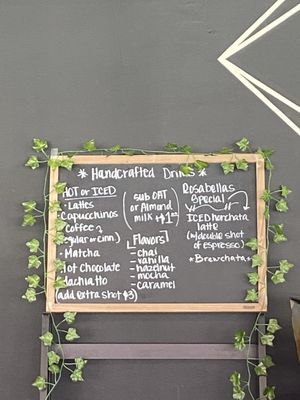 * Handcrafted Drinks *
HOT or ICED
- Lattes
- Cappucchinos
- Coffee
(regular or cinn.)
- Matcha
- Hot Chocolate
- Machiatto
(add extra shot $3)
(sub OAT
or Almond
milk +$1)
[Flavors]
- chai
- vanilla
- hazelnut
- mocha
- caramel
Rosabellas
Special
ICED horchata
latte
(w/double shot
of espresso)
* Brewchata *